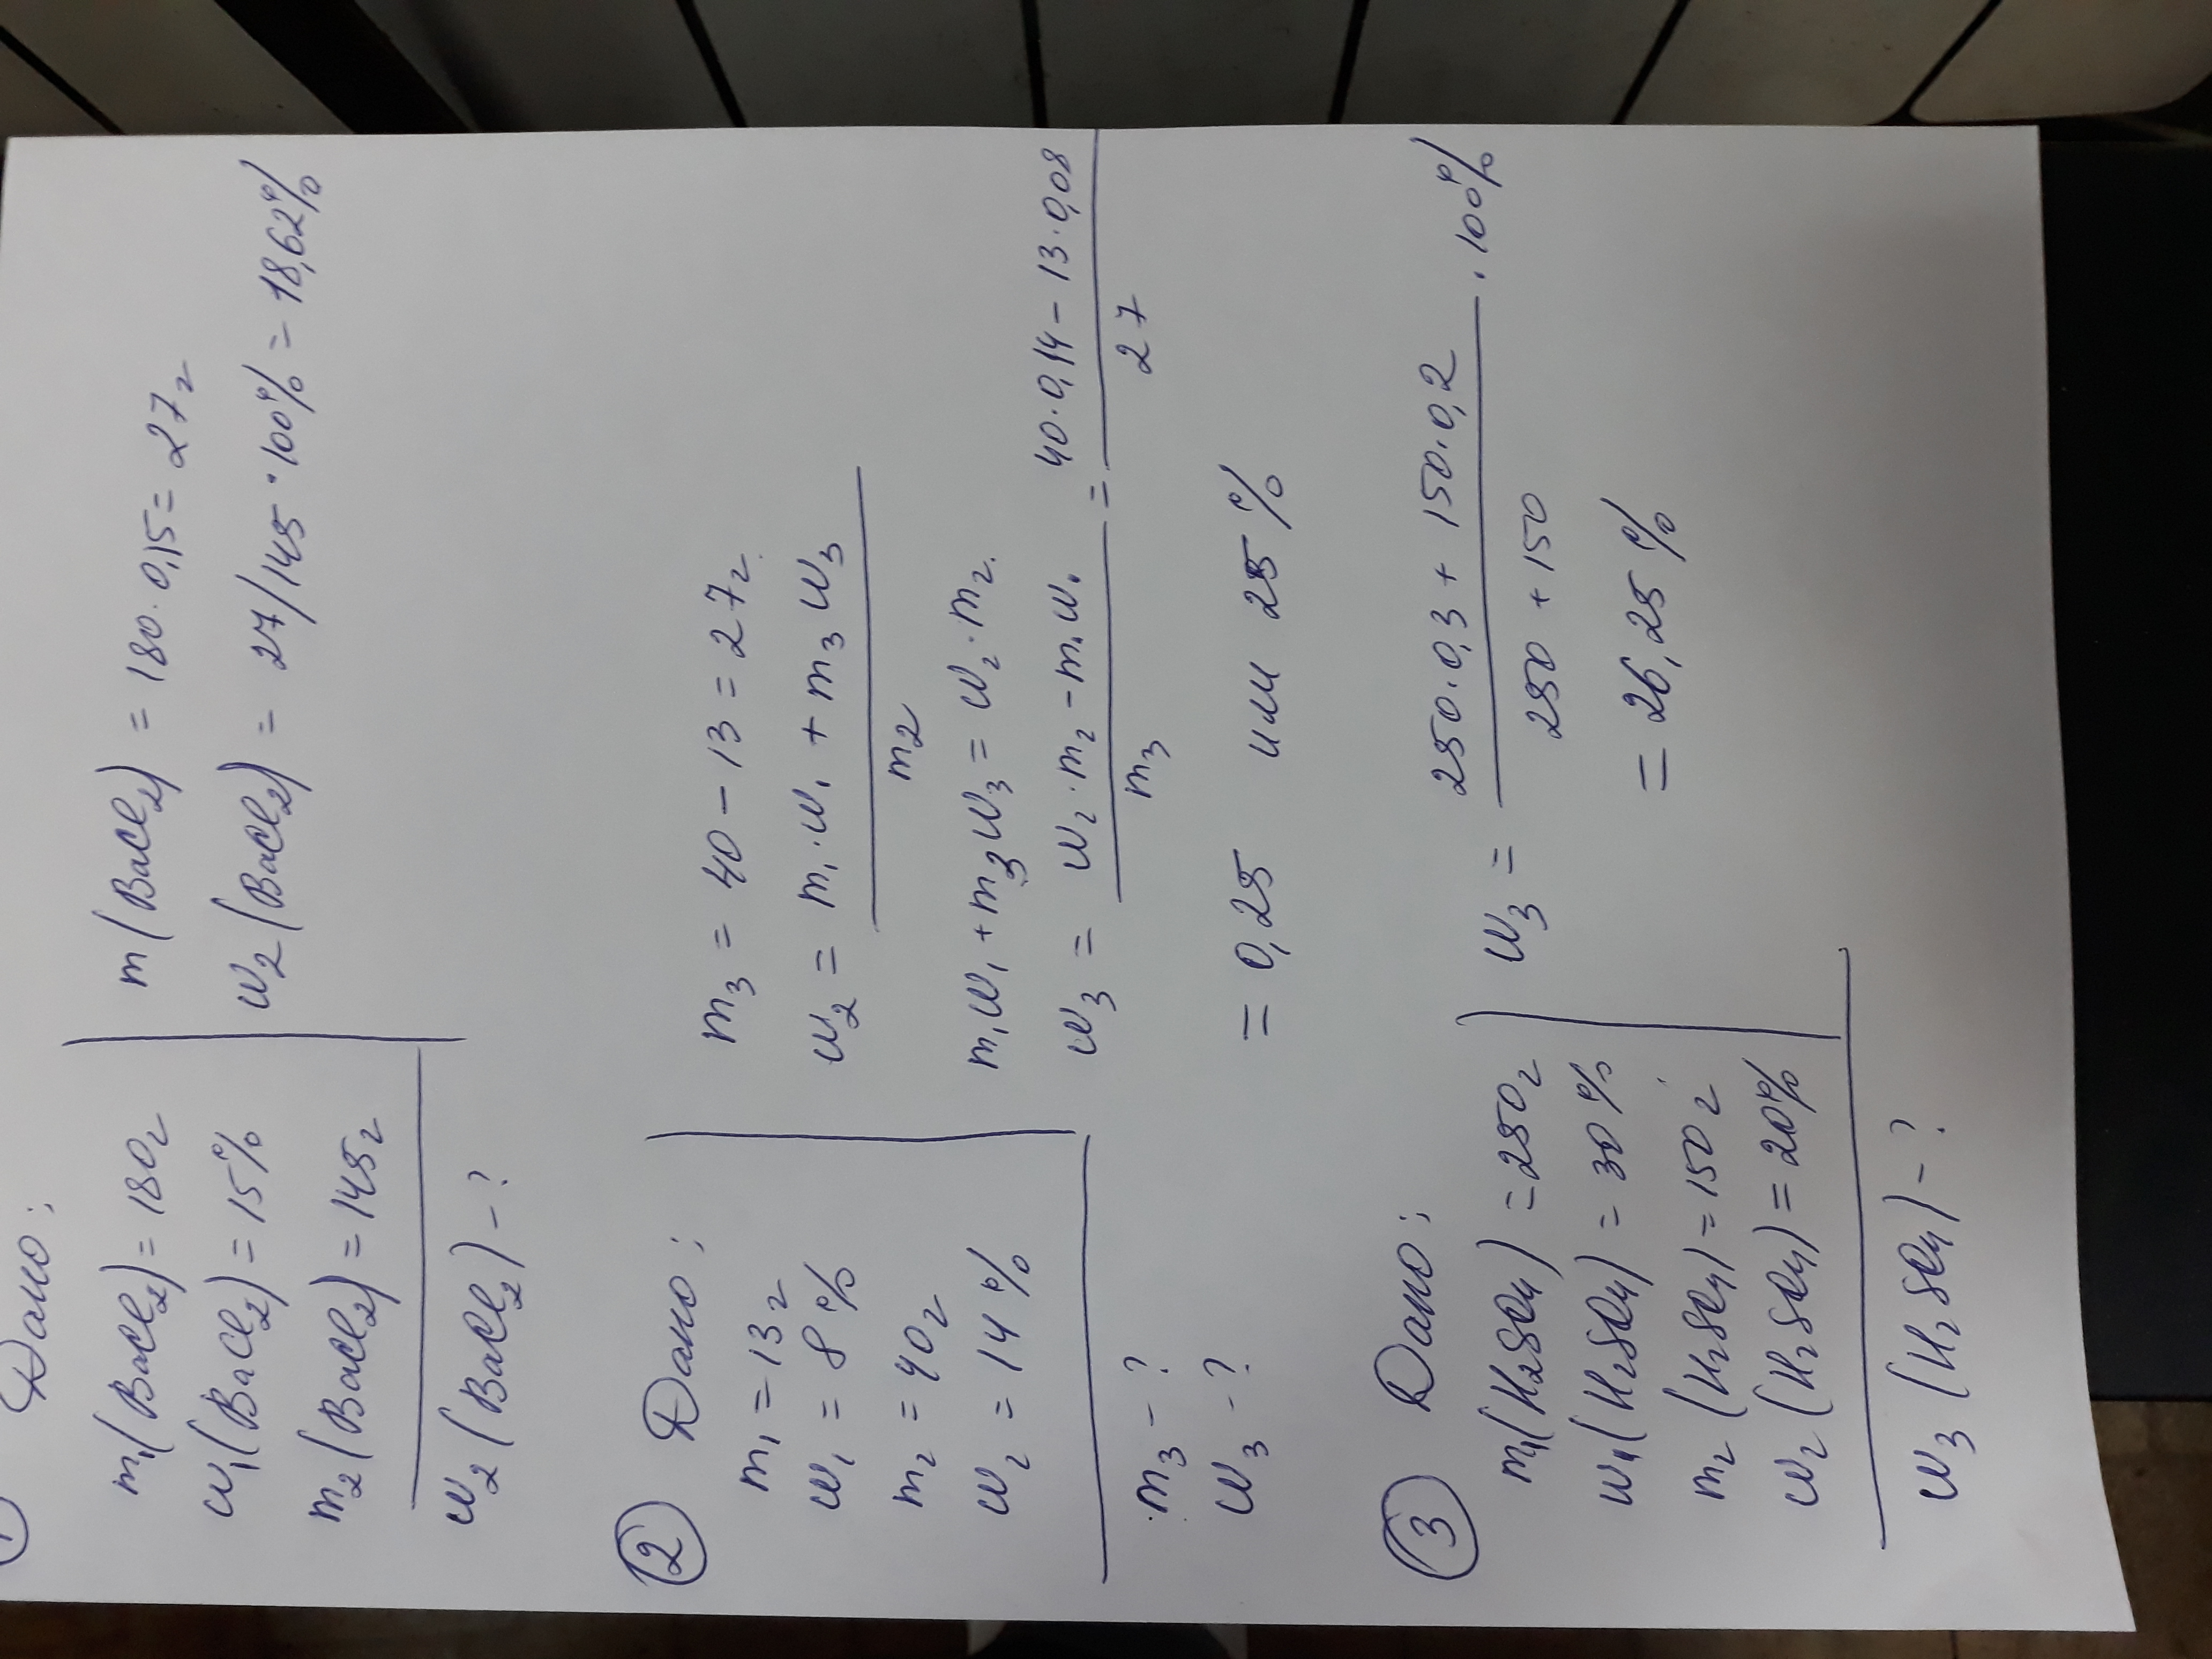 1
Дано:
m₁(BaCl₂) = 180г
w₁(BaCl₂) = 15%
m₂(BaCl₂) = 145г
w₂(BaCl₂) - ?
m(BaCl₂) = 180·0,15 = 27г
w₂(BaCl₂) = 27/145·100% = 18,62%
2 Дано:
m₁ = 13г
w₁ = 8%
m₂ = 40г
w₂ = 14%
m₃ - ?
w₃ - ?
m₃ = 40 - 13 = 27г.
w₂ = m₁·w₁ + m₃w₃
m₂
m₁w₁ + m₃w₃ = w₂·m₂.
w₃ = w₂·m₂ - m₁w₁ = 40·0,14 - 13·0,08
m₃ 27
= 0,25 или 25%
3 Дано:
m₁(H₂SO₄) = 250г
w₁(H₂SO₄) = 30%
m₂(H₂SO₄) = 150г
w₂(H₂SO₄) = 20%
w₃(H₂SO₄) - ?
w₃ = 250·0,3 + 150·0,2 · 100%
250 + 150
= 26,25%